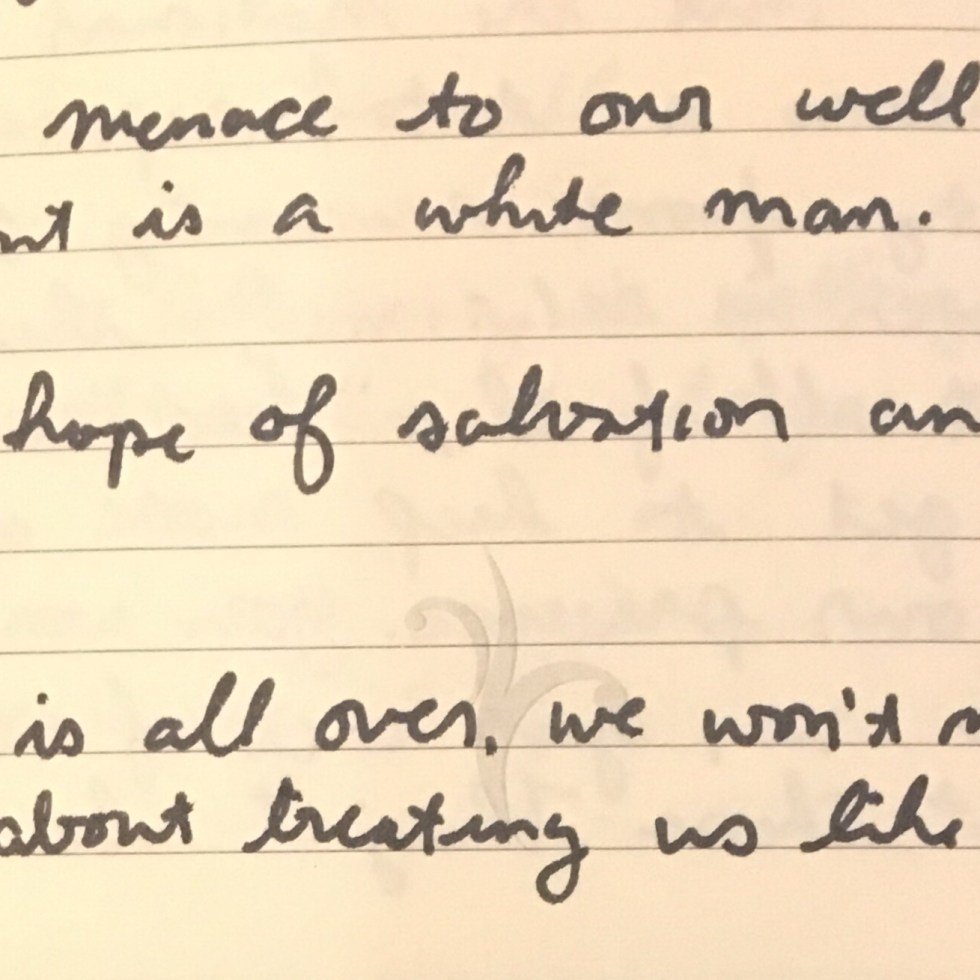 menace to our well
nt is a white man.
hope of salvation an
is all over, we won't
about treating us like